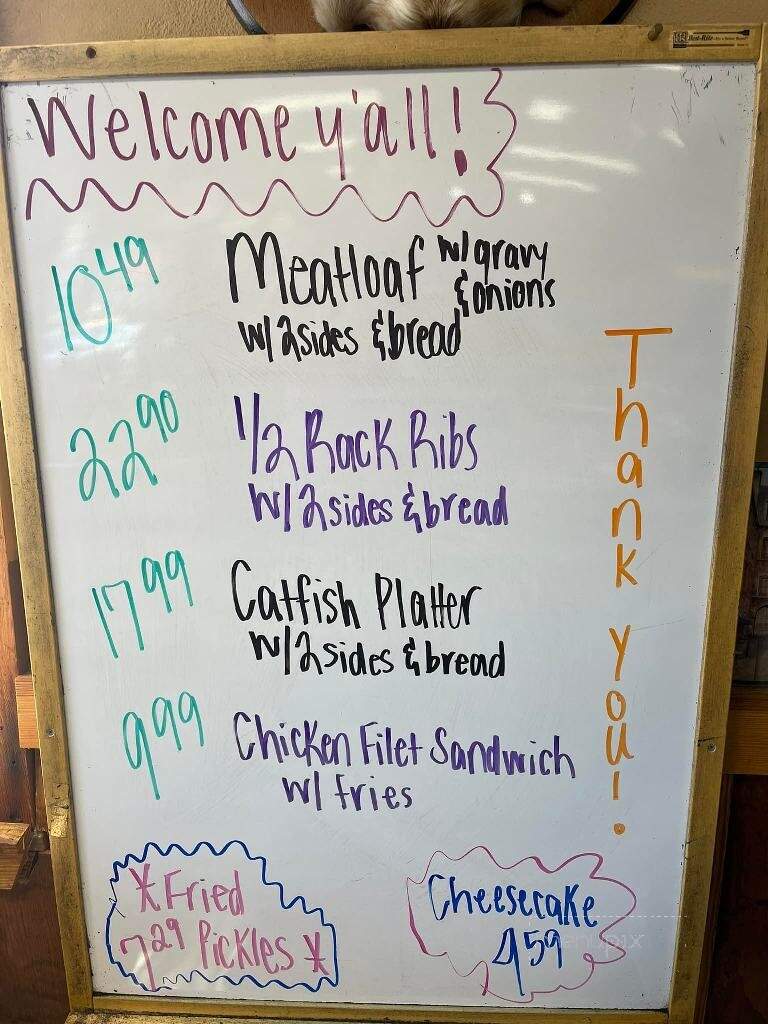 Welcome y'all!
10.49 Meatloaf w/ gravy & onions
w/ 2 sides & bread
22.90 1/2 Rack Ribs
w/ 2 sides & bread
17.99 Catfish Platter
w/ 2 sides & bread
9.99 Chicken Filet Sandwich
w/ fries
Thank you!
* Fried
7.29 Pickles *
Cheesecake
4.59